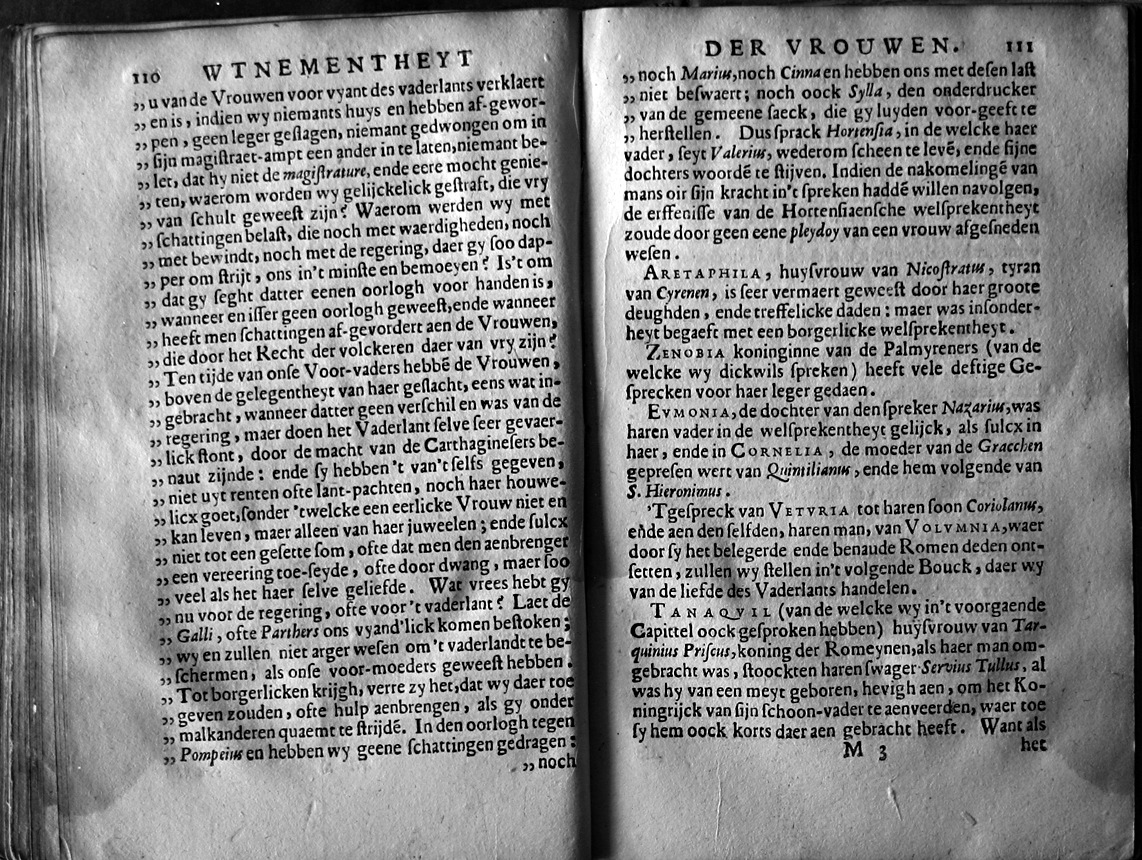 110 WTNEMENTHEYT
„ u van de Vrouwen voor vyant des vaderlants verklaert
„ en is, indien wy niemants huys en hebben af-gewor-
„ pen, geen leger geſlagen, niemant gedwongen om in
„ ſijn magiſtraet-ampt een ander in te laten, niemant be-
„ let, dat hy niet de magiſtrature, ende eere mocht genie-
„ ten, waerom worden wy gelijckelick geſtraft, die vry
„ van ſchult geweeſt zijn? Waerom werden wy met
„ ſchattingen belaſt, die noch met waerdigheden, noch
„ met bewindt, noch met de regering, daer gy ſoo dap-
„ per om ſtrijt, ons in't minſte en bemoeyen? Is't om
„ dat gy ſeght datter eenen oorlogh voor handen is,
„ wanneer en iſſer geen oorlogh geweeſt, ende wanneer
„ heeft men ſchattingen af-gevordert aen de Vrouwen,
„ die door het Recht der volckeren daer van vry zijn?
„ Ten tijde van onſe Voor-vaders hebbē de Vrouwen,
„ boven de gelegentheyt van haer geſlacht, eens wat in-
„ gebracht, wanneer datter geen verſchil en was van de
„ regering, maer doen het Vaderlant ſelve ſeer gevaer-
„ lick ſtont, door de macht van de Carthagineſers be-
„ naut zijnde: ende ſy hebben 't van't ſelfs gegeven,
„ niet uyt renten ofte lant-pachten, noch haer houwe-
„ licx goet, ſonder 'twelcke een eerlicke Vrouw niet en
„ kan leven, maer alleen van haer juweelen; ende ſulcx
„ niet tot een geſette ſom, ofte dat men den aenbrenger
„ een vereering toe-ſeyde, ofte door dwang, maer ſoo
„ veel als het haer ſelve geliefde. Wat vrees hebt gy
„ nu voor de regering, ofte voor't vaderlant? Laet de
„ Galli, ofte Parthers ons vyand'lick komen beſtoken;
„ wy en zullen niet arger weſen om't vaderlandt te be-
„ ſchermen, als onſe voor-moeders geweeſt hebben.
„ Tot borgerlicken krijgh, verre zy het, dat wy daer toe
„ geven zouden, ofte hulp aenbrengen, als gy onder
„ malkanderen quaemt te ſtrijdē. In den oorlogh tegen
„ Pompeius en hebben wy geene ſchattingen gedragen:
„ noch
DER VROUWEN. 111
„ noch Marius, noch Cinna en hebben ons met deſen laſt
„ niet beſwaert; noch oock Sylla, den onderdrucker
„ van de gemeene ſaeck, die gy luyden voor-geeft te
„ herſtellen. Dus ſprack Hortenſia, in de welcke haer
vader, ſeyt Valerius, wederom ſcheen te levē, ende ſijne
dochters woordē te ſtijven. Indien de nakomelingē van
mans oir ſijn kracht in't ſpreken haddē willen navolgen,
de erffeniſſe van de Hortenſiaenſche welſprekentheyt
zoude door geen eene pleydoy van een vrouw afgeſneden
weſen.
ARETAPHILA, huyſvrouw van Nicoſtratus, tyran
van Cyrenen, is ſeer vermaert geweeſt door haer groote
deughden, ende treffelicke daden: maer was inſonder-
heyt begaeft met een borgerlicke welſprekentheyt.
ZENOBIA koninginne van de Palmyreners (van de
welcke wy dickwils ſpreken) heeft vele deftige Ge-
ſprecken voor haer leger gedaen.
EVMONIA, de dochter van den ſpreker Nazarius, was
haren vader in de welſprekentheyt gelijck, als ſulcx in
haer, ende in CORNELIA, de moeder van de Gracchen
gepreſen wert van Quintilianus, ende hem volgende van
S. Hieronimus.
'Tgeſpreck van VETVRIA tot haren ſoon Coriolanus,
eñde aen den ſelfden, haren man, van VOLVMNIA, waer
door ſy het belegerde ende benaude Romen deden ont-
ſetten, zullen wy ſtellen in't volgende Bouck, daer wy
van de liefde des Vaderlants handelen.
TANAQVIL (van de welcke wy in't voorgaende
Capittel oock geſproken hebben) huyſvrouw van Tar-
quinius Priſcus, koning der Romeynen, als haer man om-
gebracht was, ſtoockten haren ſwager Servius Tullus, al
was hy van een meyt geboren, hevigh aen, om het Ko-
ningrijck van ſijn ſchoon-vader te aenveerden, waer toe
ſy hem oock korts daer aen gebracht heeft. Want als
M 3 het